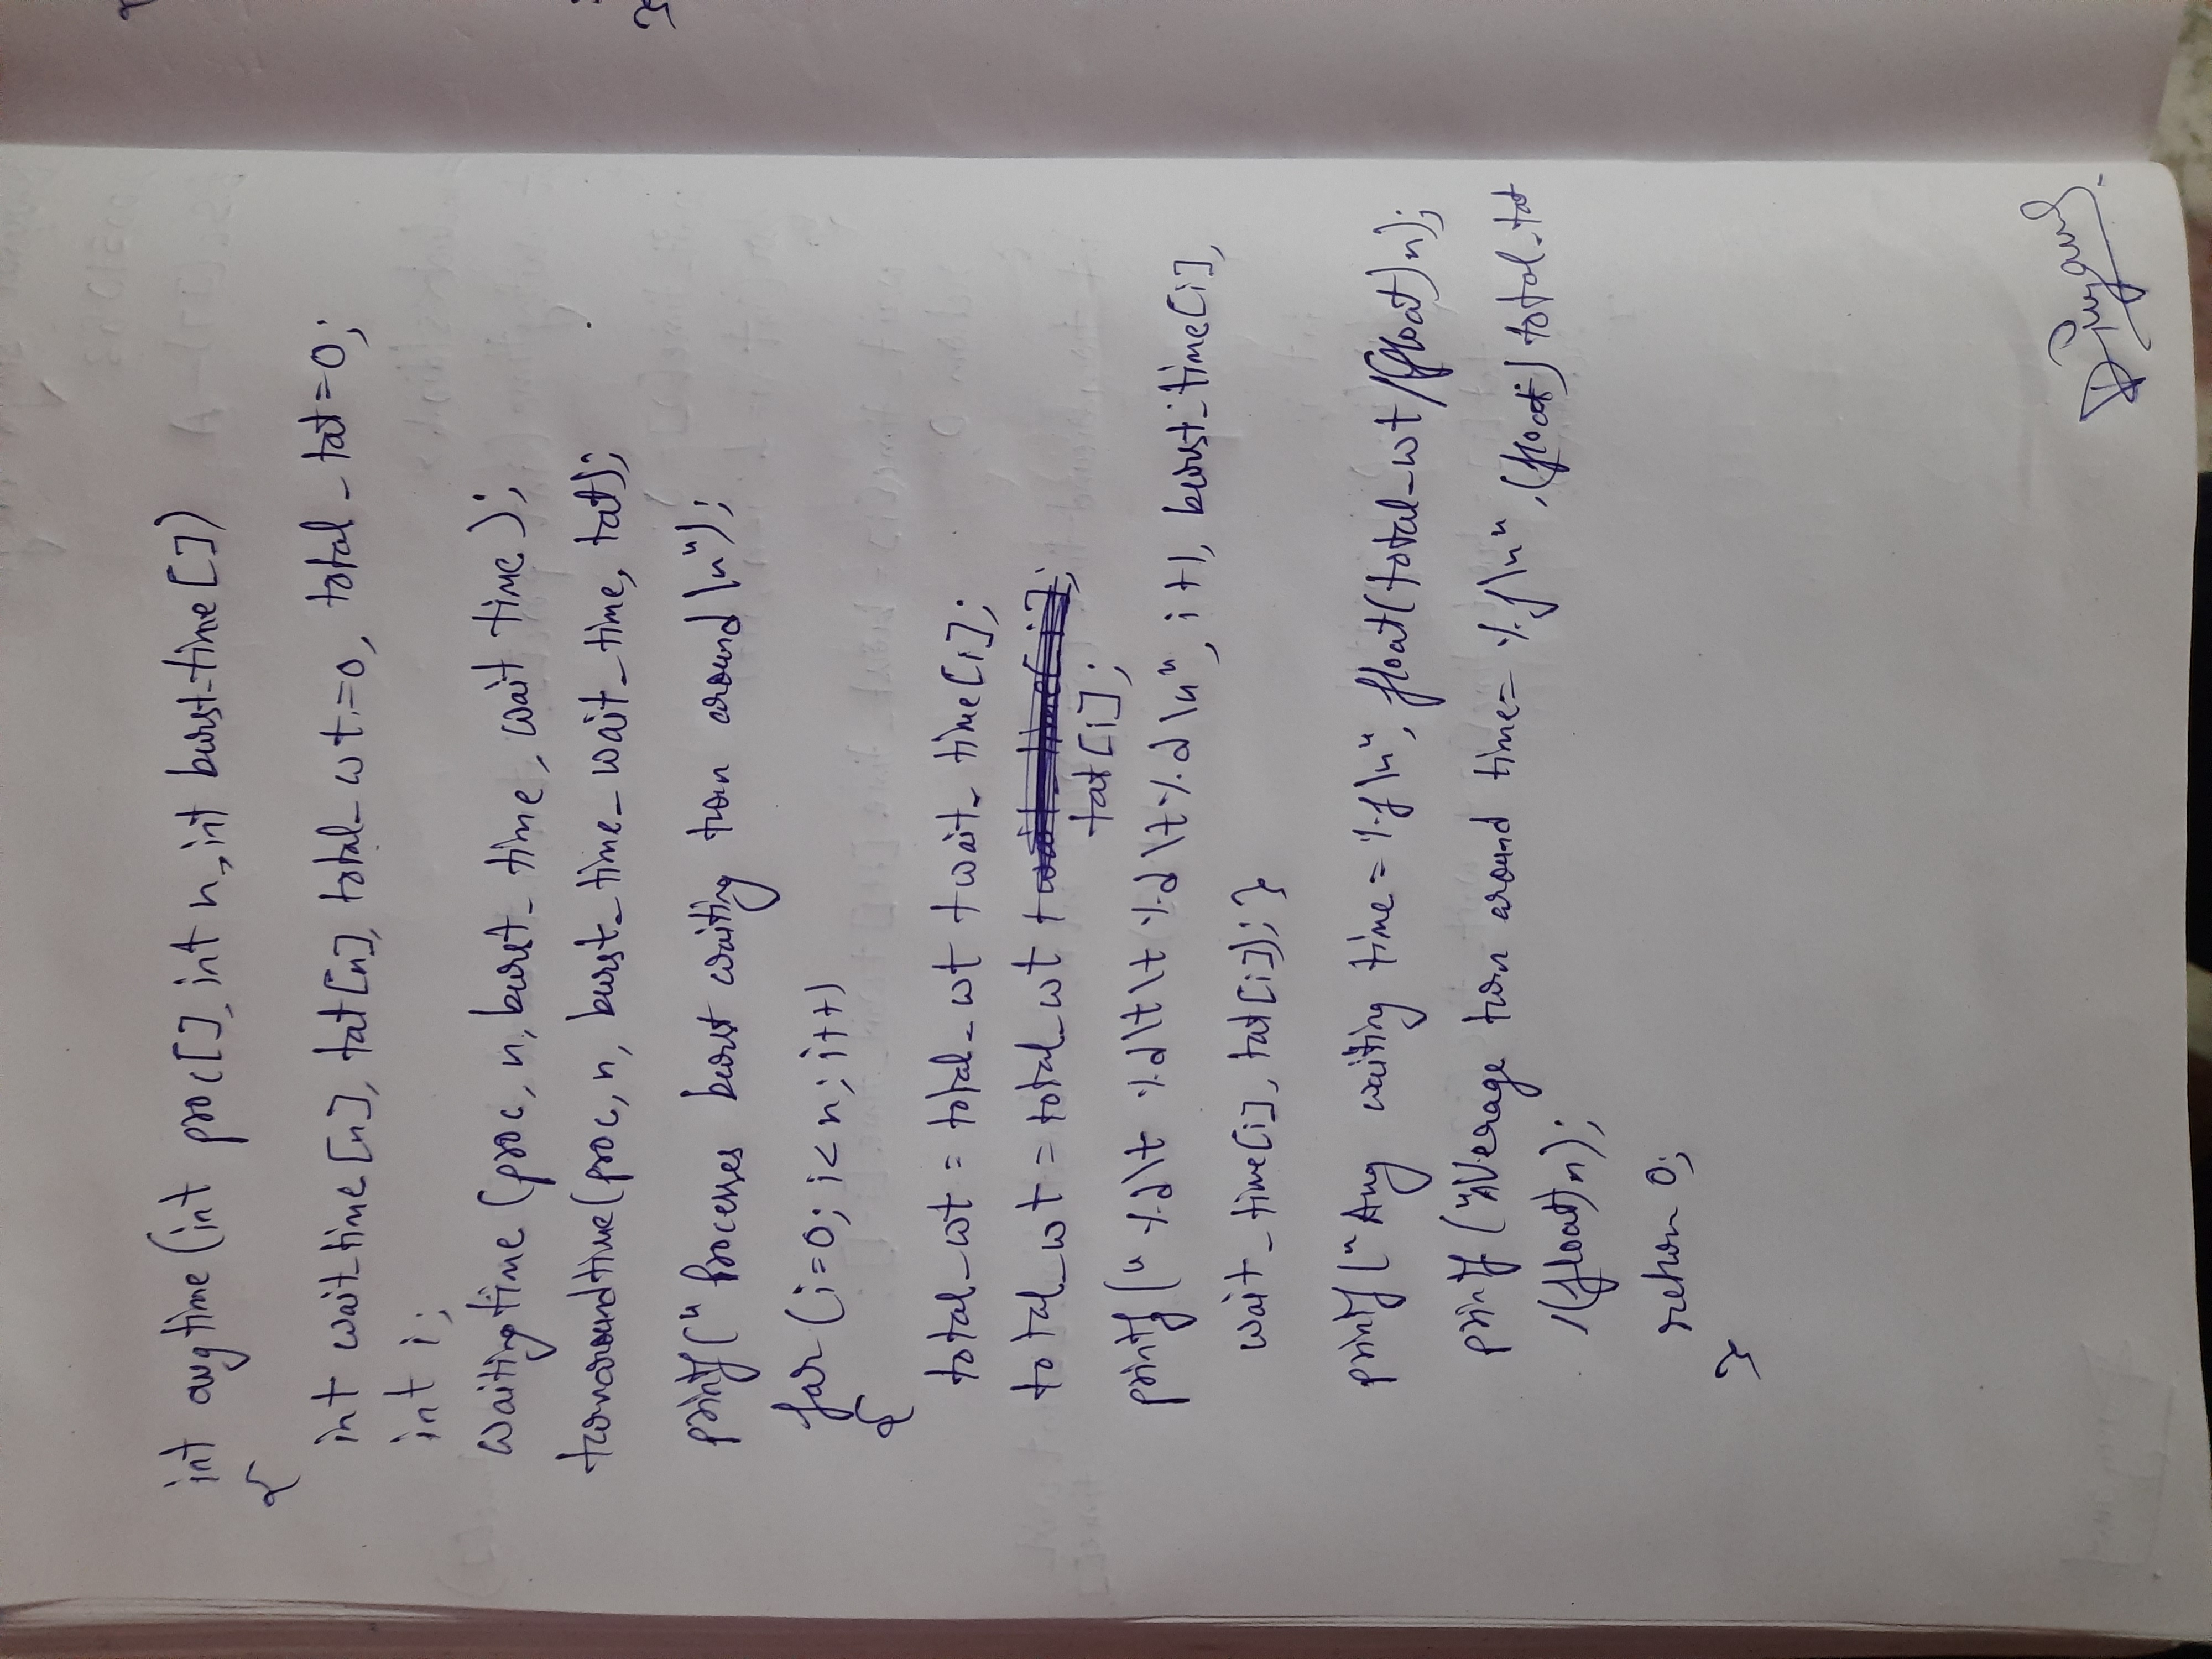 int avgtime (int proc[], int n, int burst_time [])
{
int wait_time [n], tat [n], total_wt=0, total_tat=0;
int i;
Waitingtime (proc, n, burst_time, wait time);
turnaroundtime(proc, n, burst_time_wait_time, tat);
printf("Processes burst waiting turn around \n");
for (i=0; i<n; i++)
{
total_wt = total_wt + wait_time[i];
total_wt = total_wt + wait_time[i];
tat[i];
printf("%d\t %d\t\t %d\t%d\n", i+1, burst_time[i],
wait_time[i], tat[i]); }
printf("Avg waiting time=%f\n", float(total_wt/(float)n);
printf("Average turn around time=%f\n",(float) total_tat
/(float)n);
return 0;
}